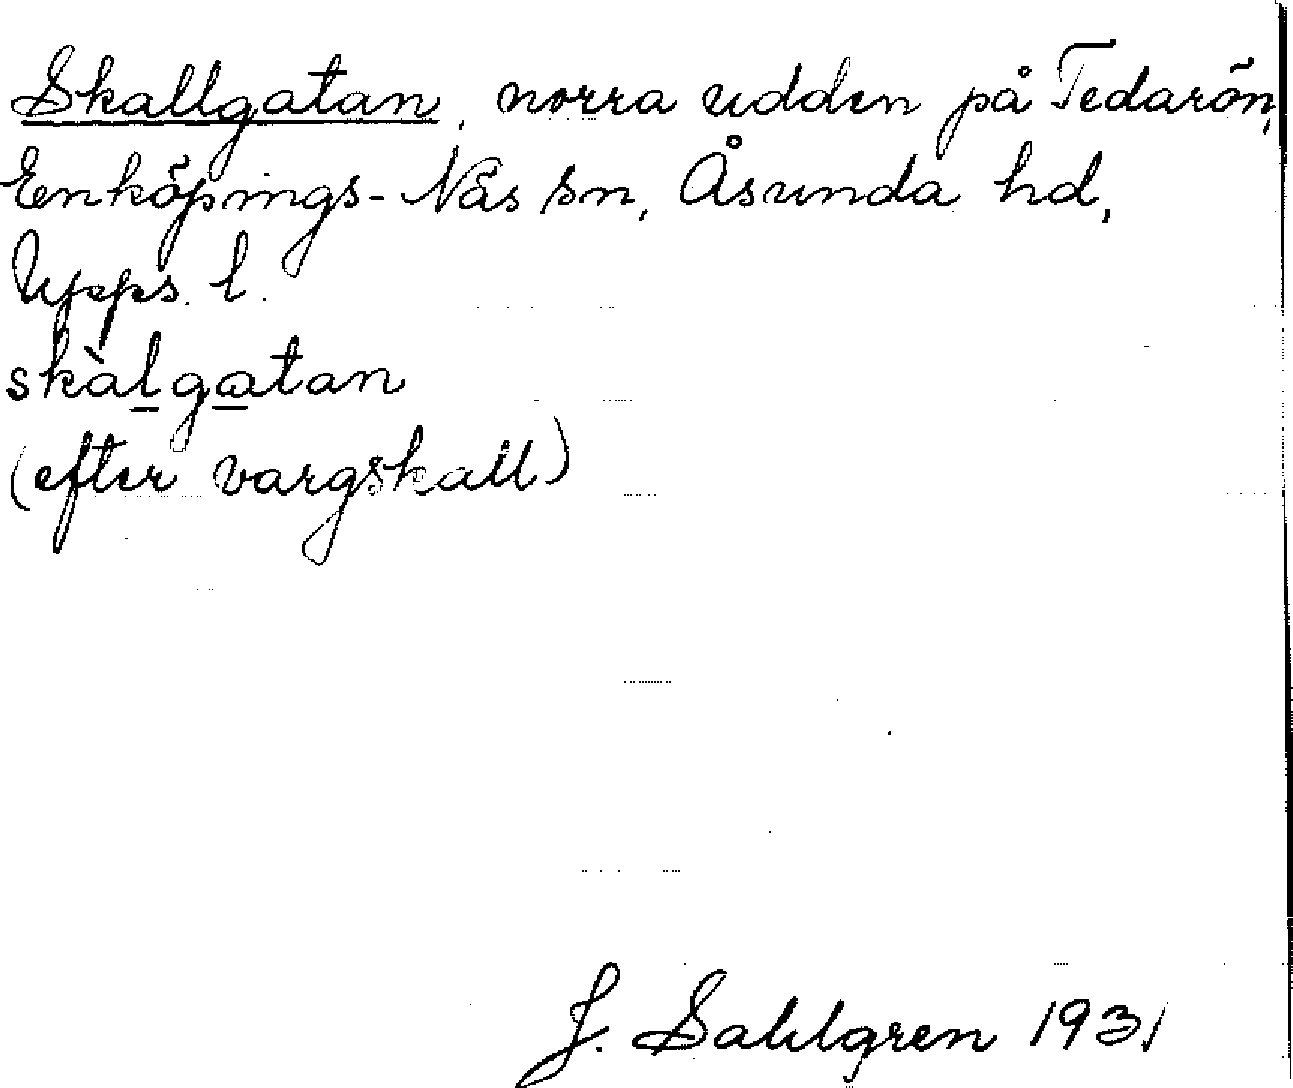 Skallgatan, norra udden på Tedarön,
Enköpings-Näs sn, Åsunda hd,
Upps. l.
skàlgatan
(efter vargskall)
J. Sahlgren 1931